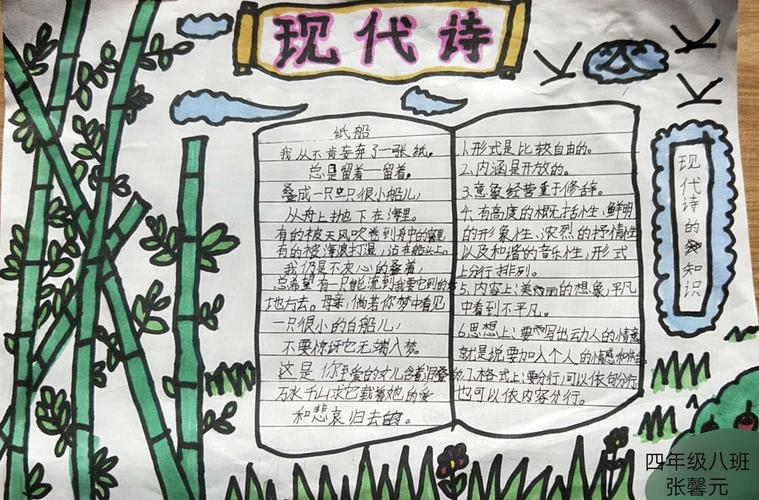 现代诗
纸船
我从不肯妄弃了一张纸。
总是留着一留着。
叠成一只只很小船儿
从舟上抛下在海里。
有的被天风吹卷到舟中的窗里
有的被海浪打湿,沾在船头上。
我仍是不灰心的叠着,
总希望有一只能流到我要它到的
地方去。母亲,倘若你梦中看见
一只很小的白船儿,
不要惊讶它无端入梦。
这是你至爱的女儿含着泪叠的
万水千山求它载着她的爱
和悲哀归去。
1.形式是比较自由的。
2.内涵是开放的。
3.意象经营重于修辞。
4.有高度的概括性、鲜明
的形象性、浓烈的抒情性
以及和谐的音乐性,形式
上分行排列。
5.内容上:美的想象,平凡
中看到不平凡。
6.思想上:要写出动人的情意
就是说要加入个人的情感和
7.格式上:要分行,可以依句分行
也可以依内容分行。
现代诗的知识
四年级八班
张馨元